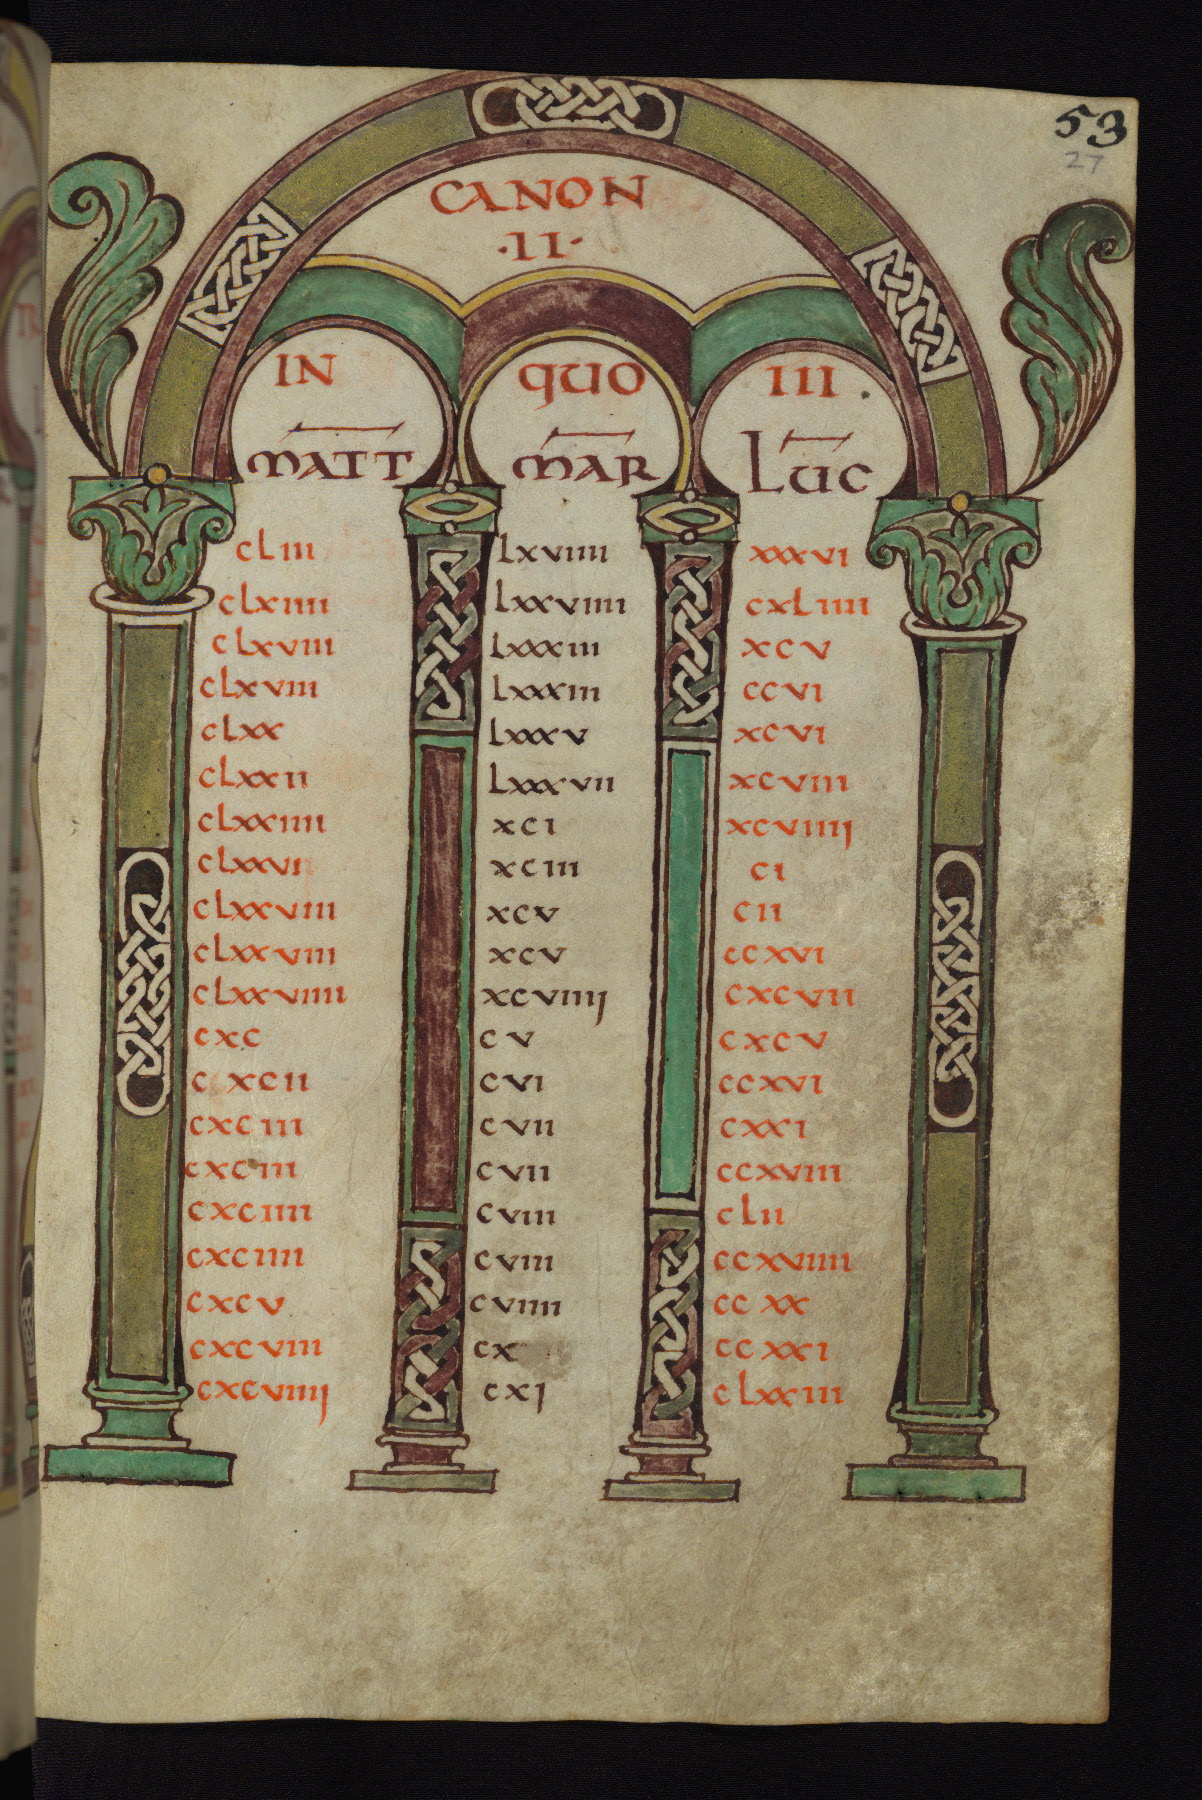 53
27
CANON
·II·
IN QUO III
MATT MAR LUC
cLiii Lxviiii xxxvi
cLxiiii Lxxviiii cxLiiii
cLxviii Lxxxiii xcv
cLxviii Lxxxiii ccvi
cLxx Lxxxv xcvi
cLxxii Lxxxvii xcviii
cLxxiiii xci xcviiij
cLxxvi xciii ci
cLxxviii xcv cii
cLxxviii xcv ccxvi
cLxxviiii xcviiij cxcvii
cxc cv cxcv
cxcii cvi ccxvi
cxciii cvii cxxi
cxciii cvii ccxviii
cxciiii cviii cLii
cxciiii cviii ccxviiii
cxcv cviiii ccxx
cxcviii cx ccxxi
cxcviiij cxj cLxxiii